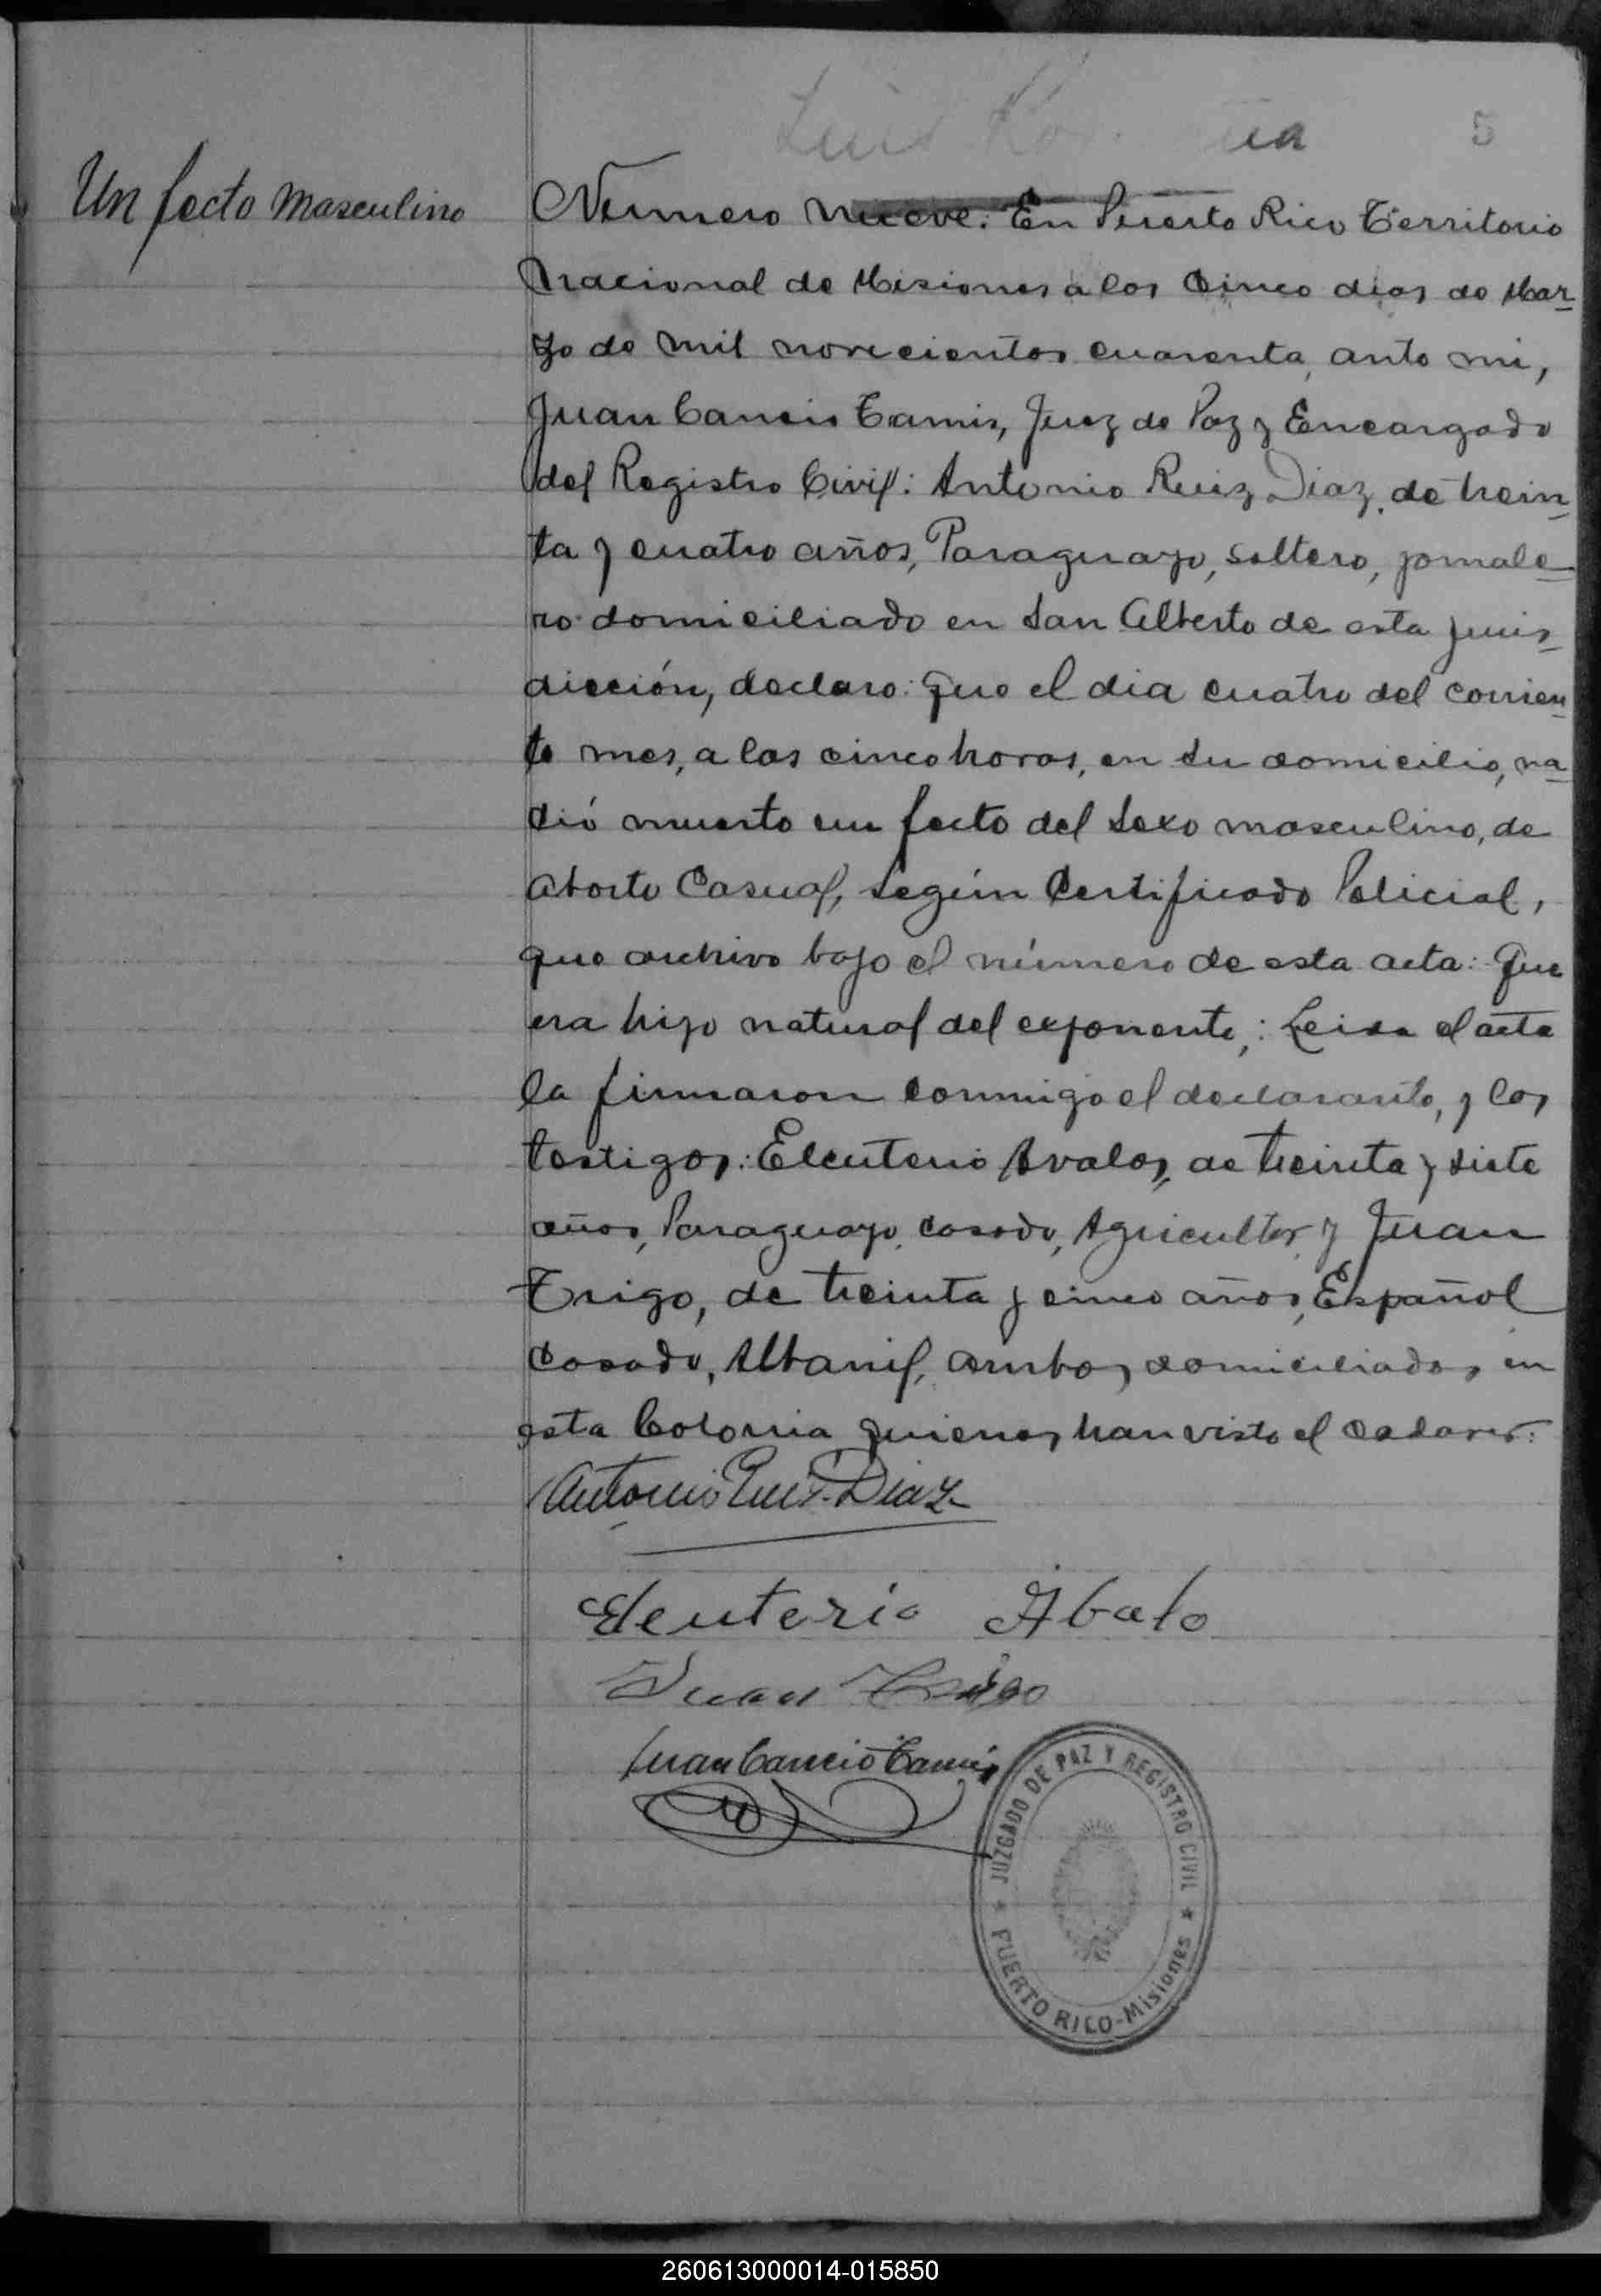 Luis ua 5
Un fecto masculino
Número nueve: En Puerto Rico Territorio
Nacional de Misiones a los cinco dias de Mar-
zo de mil novecientos cuarenta, ante mi,
Juan Cancio Camis, Juez de Paz y Encargado
del Registro Civil: Antonio Ruiz Diaz, de trein-
ta y cuatro años, Paraguayo, soltero, jornale-
ro domiciliado en San Alberto de esta juris-
dicción, declaro: que el dia cuatro del corrien-
te mes, a las cinco horas, en su domicilio, na-
ció muerto un fecto del sexo masculino, de
aborto Casual, según Certificado Policial,
que archivo bajo el número de esta acta: Que
era hijo natural del exponente,: Leida el acta
la firmaron conmigo el declarante, y los
testigos: Eleuterio Avalos, de treinta y siete
años, Paraguayo, casado, Agricultor y Juan
Trigo, de treinta y cinco años, Español
Casado, Albanil, ambos domiciliados en
esta Colonia quienes han visto el cadaver:
Antonio Ruiz-Diaz
Eleuterio Abalo
Juan Trigo
Juan Cancio Camis
JUZGADO DE PAZ Y REGISTRO CIVIL
PUERTO RICO-Misiones
260613000014-015850